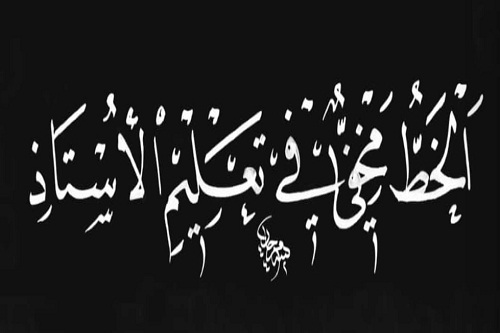 اَلْخَطُّ مَخْفِيٌّ فِي تَعْلِيْمِ الْأُسْتَاذِ